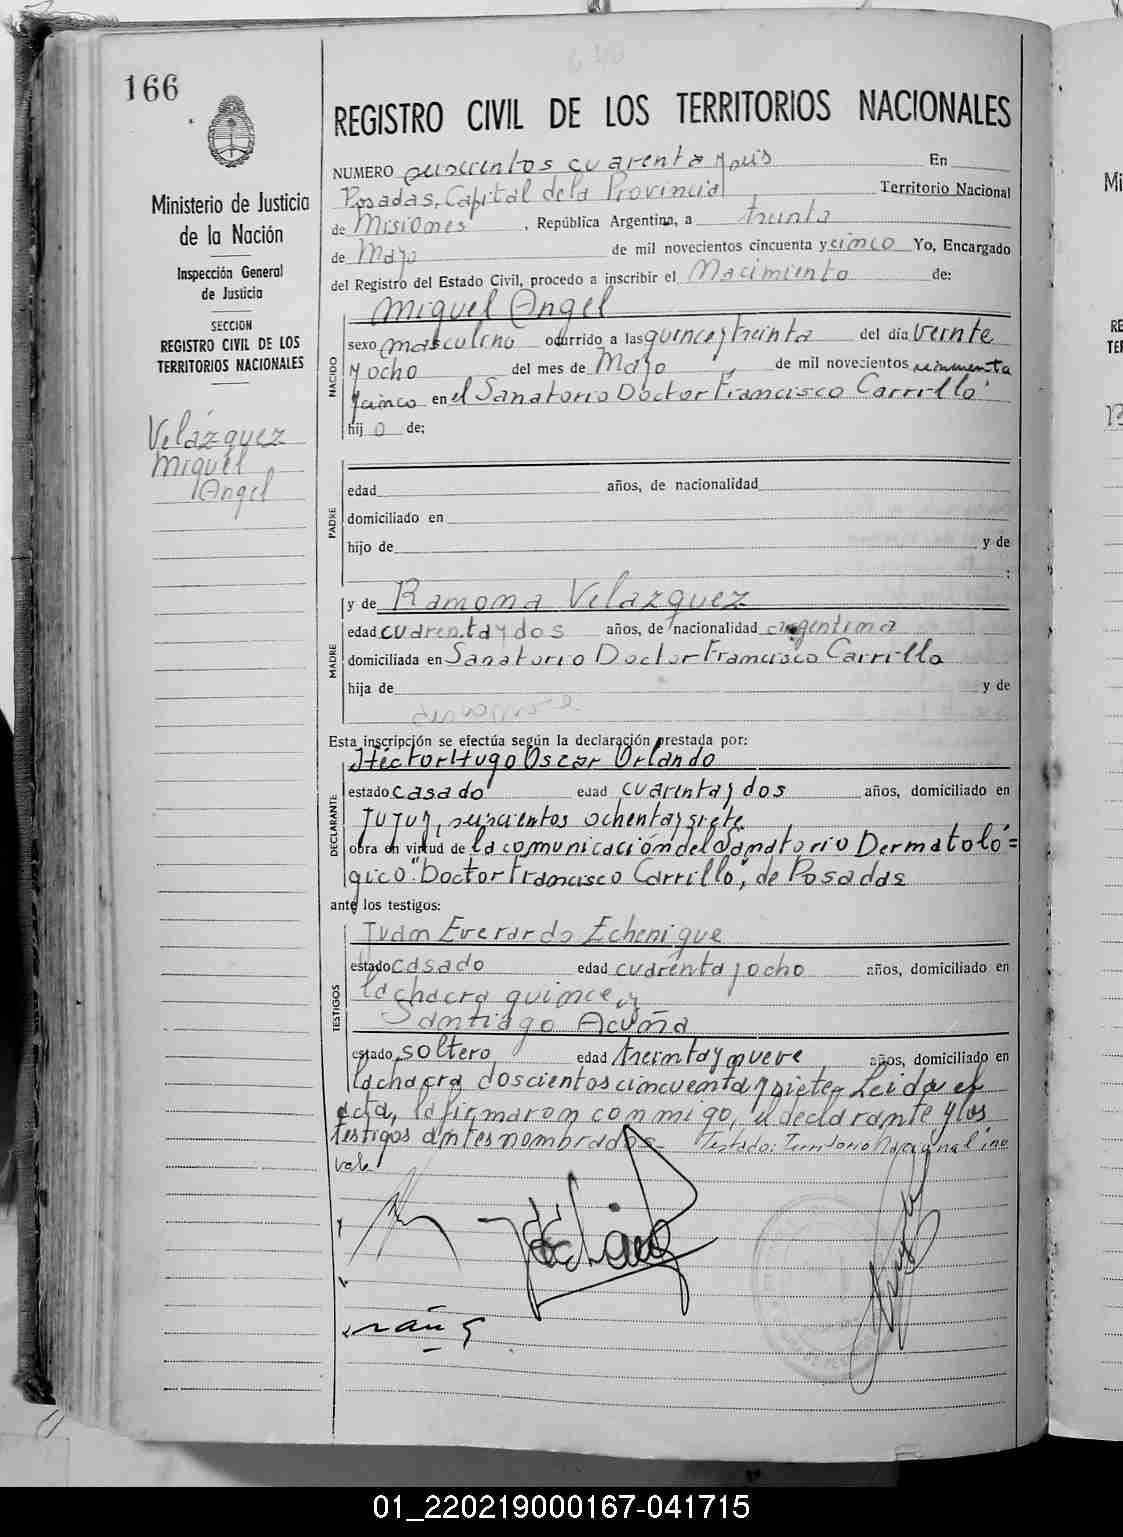 166
REGISTRO CIVIL DE LOS TERRITORIOS NACIONALES
Ministerio de Justicia
de la Nación
Inspección General
de Justicia
SECCION
REGISTRO CIVIL DE LOS
TERRITORIOS NACIONALES
Velázquez
Miguel
Angel
NUMERO seiscientos cuarenta y seis En
Posadas, Capital de la Provincia Territorio Nacional
de Misiones, República Argentina, a treinta
de Mayo de mil novecientos cincuenta y cinco Yo, Encargado
del Registro del Estado Civil, procedo a inscribir el Nacimiento de:
Miguel Angel
NACIDO
sexo masculino ocurrido a las quince y treinta del día veinte
y ocho del mes de Mayo de mil novecientos cincuenta
y cinco en el Sanatorio Doctor Francisco Carrillo
hijo de:
PADRE
edad años, de nacionalidad
domiciliado en
hijo de y de
:
y de Ramona Velazquez
MADRE
edad cuarenta y dos años, de nacionalidad argentina
domiciliada en Sanatorio Doctor Francisco Carrillo
hija de y de
Esta inscripción se efectúa según la declaración prestada por:
Héctor Hugo Oscar Orlando
DECLARANTE
estado casado edad cuarenta y dos años, domiciliado en
Jujuy, seiscientos ochenta y siete
obra en virtud de la comunicación del Sanatorio Dermatoló=
gico "Doctor Francisco Carrillo", de Posadas
ante los testigos:
TESTIGOS
Juan Everardo Echenique
estado casado edad cuarenta y ocho años, domiciliado en
la chacra quince, y
Santiago Acuña
estado soltero edad treinta y nueve años, domiciliado en
la chacra doscientos cincuenta y siete. Leida el
acta, la firmaron conmigo, el declarante y los
testigos antes nombrados. Testado: Territorio Nacional: no
vale.
01_220219000167-041715